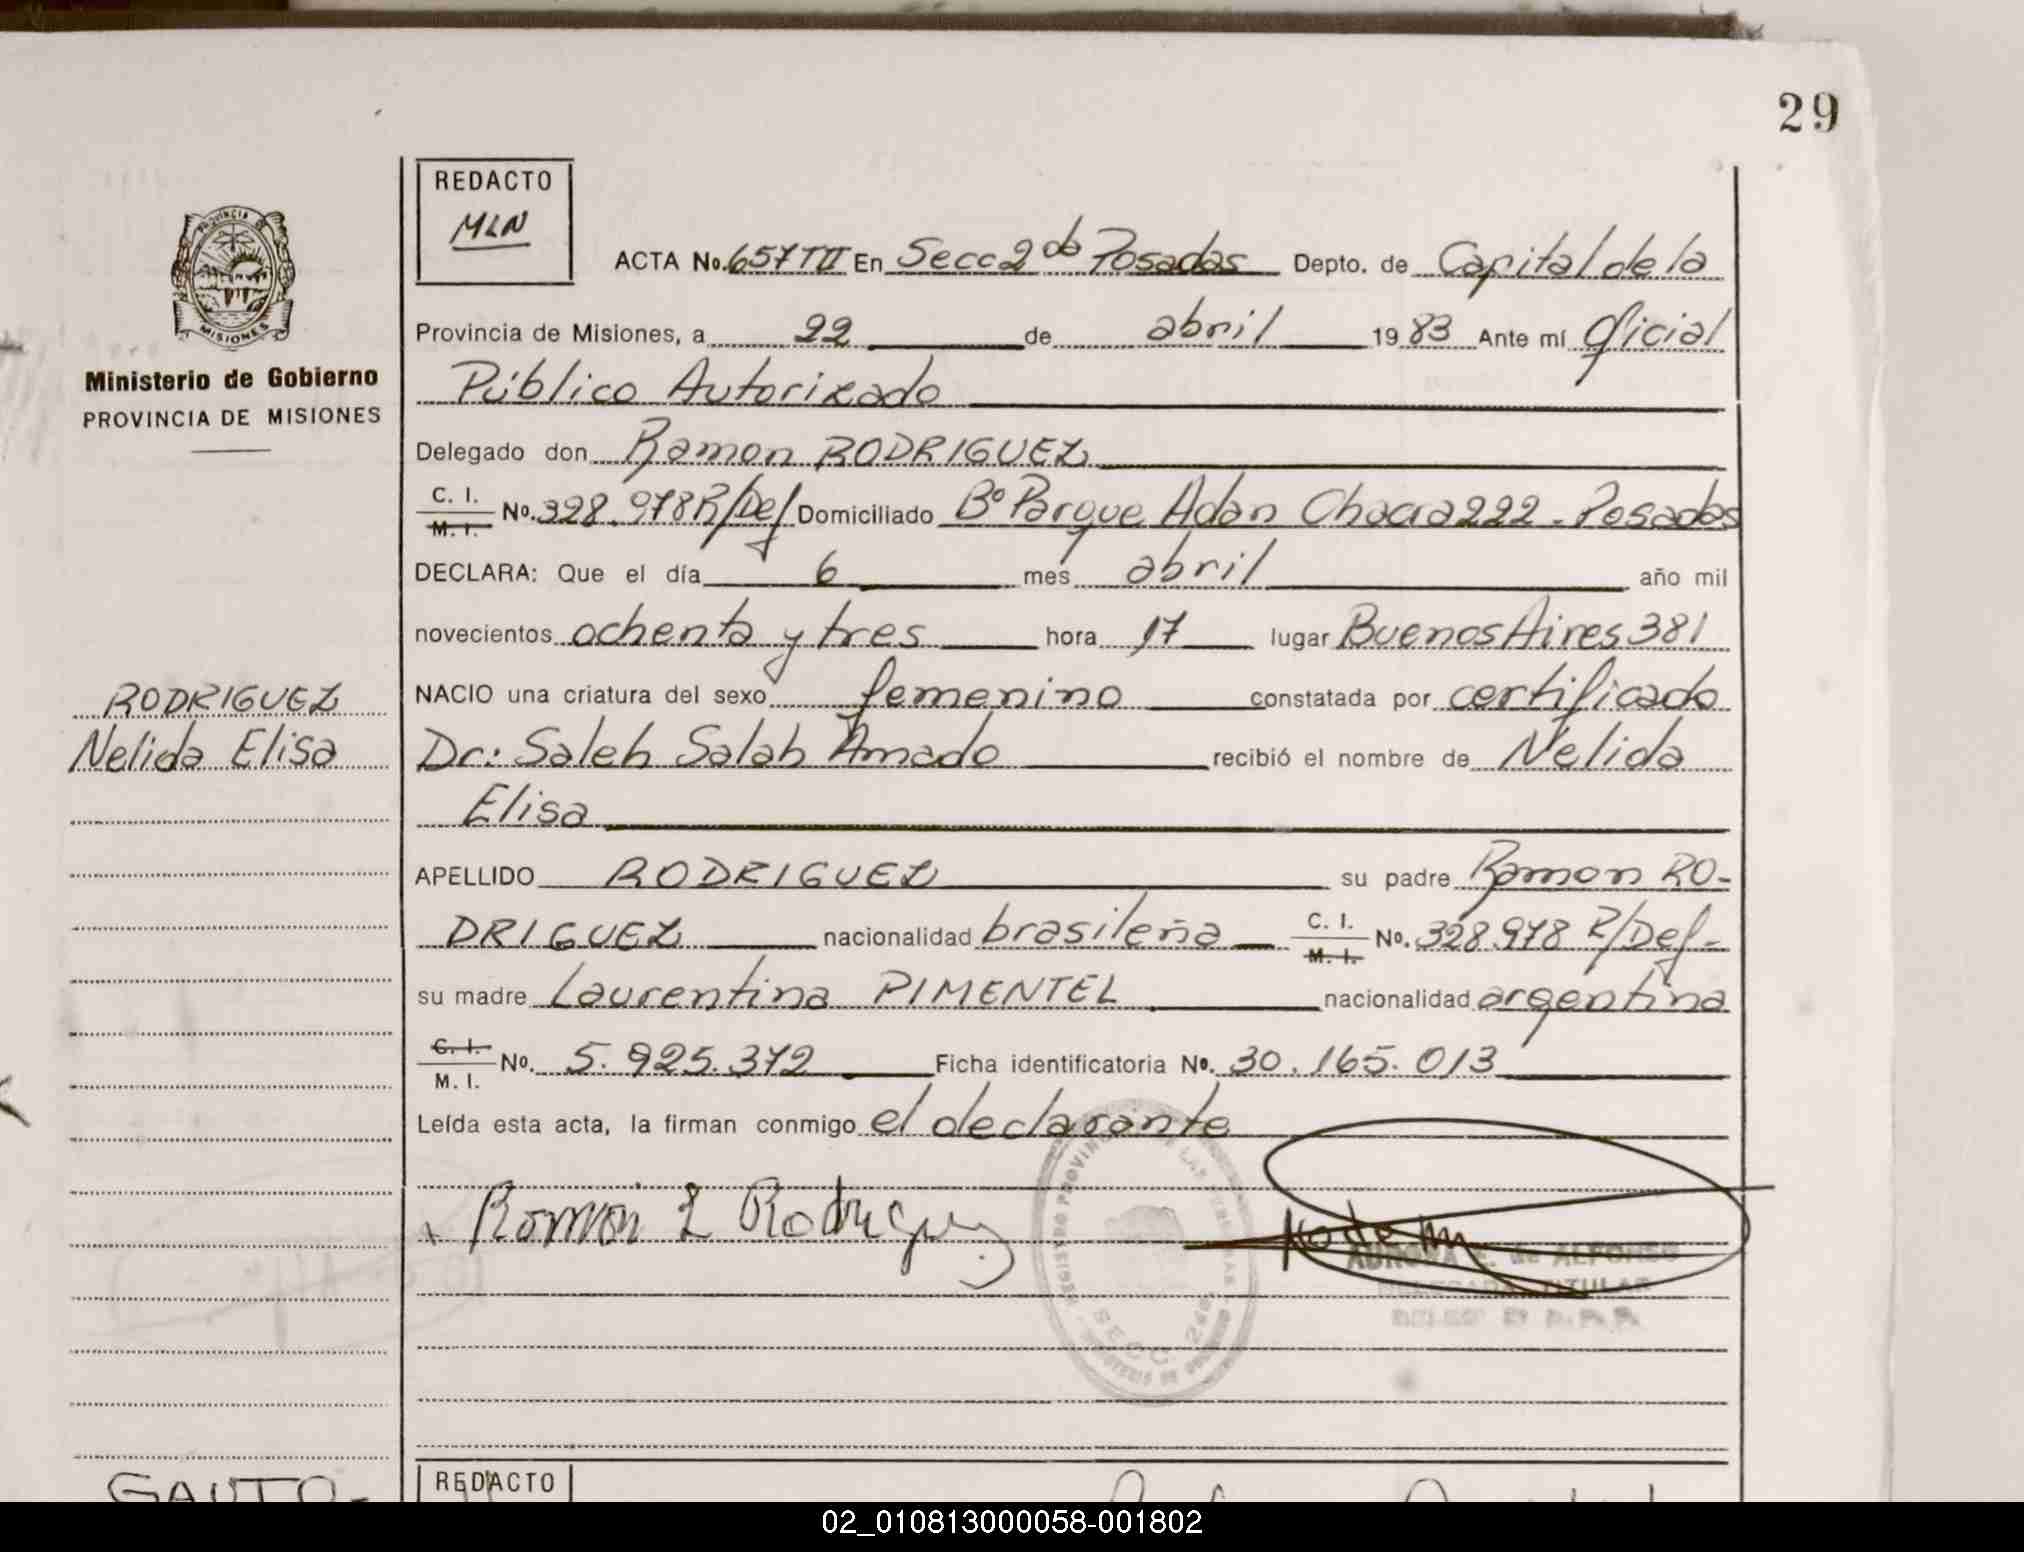 29
REDACTO
MLN
PROVINCIA DE
MISIONES
Ministerio de Gobierno
PROVINCIA DE MISIONES
ACTA No. 657 TII En Secc 2da Posadas Depto. de Capital de la
Provincia de Misiones, a 22 de abril 1983 Ante mí Oficial
Público Autorizado
Delegado don Ramon RODRIGUEZ
C. I.
M. I. No. 328.978 R/Def Domiciliado Bº Parque Adan Chacra 222 - Posadas
DECLARA: Que el día 6 mes abril año mil
novecientos ochenta y tres hora 17 lugar Buenos Aires 381
RODRIGUEZ
Nelida Elisa
NACIO una criatura del sexo femenino constatada por certificado
Dr: Saleh Salah Amado recibió el nombre de Nelida
Elisa
APELLIDO RODRIGUEZ su padre Ramon RO-
DRIGUEZ nacionalidad brasileña C. I. M. I. No. 328.978 R/Def-
su madre Laurentina PIMENTEL nacionalidad argentina
C. I.
M. I. No. 5.925.372 Ficha identificatoria No. 30.165.013
Leída esta acta, la firman conmigo el declarante
Ramon Rodriguez
REGISTRO PROVINCIAL DE LAS PERSONAS
SECC. 2da
AURORA E. de ALFONSO
DELEGADA TITULAR
GAUTO-
REDACTO
02_010813000058-001802